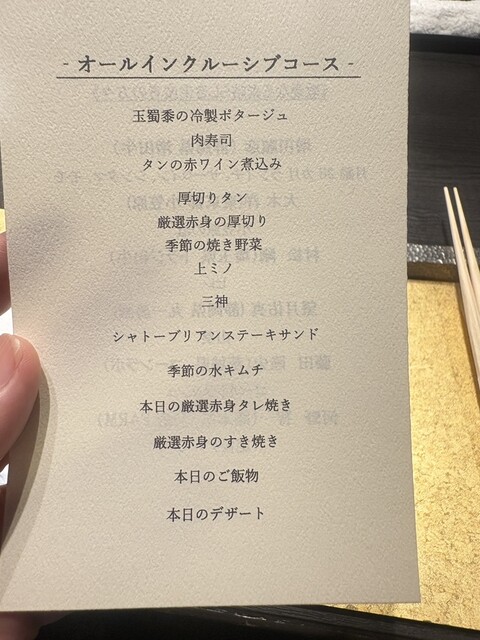 - オールインクルーシブコース -
玉蜀黍の冷製ポタージュ
肉寿司
タンの赤ワイン煮込み
厚切りタン
厳選赤身の厚切り
季節の焼き野菜
上ミノ
三神
シャトーブリアンステーキサンド
季節の水キムチ
本日の厳選赤身タレ焼き
厳選赤身のすき焼き
本日のご飯物
本日のデザート